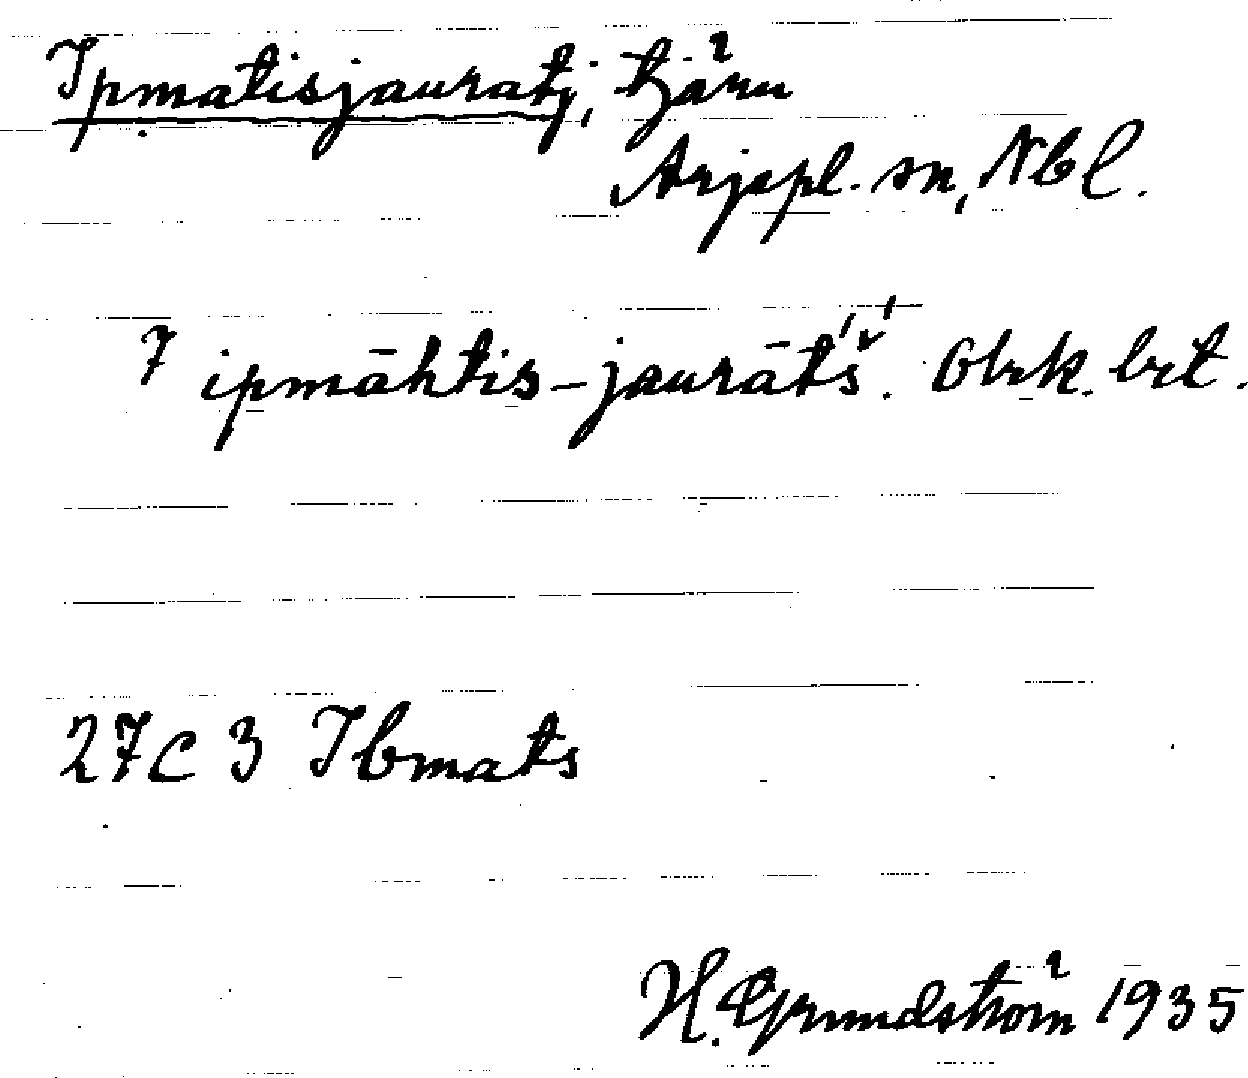 Ipmatisjauratj, tjärn
Arjepl. sn, Nbl.
7 ipmāhtis-jaurāt́š́. Obrk. brt.
27C 3 Ibmats
H. Grundström 1935